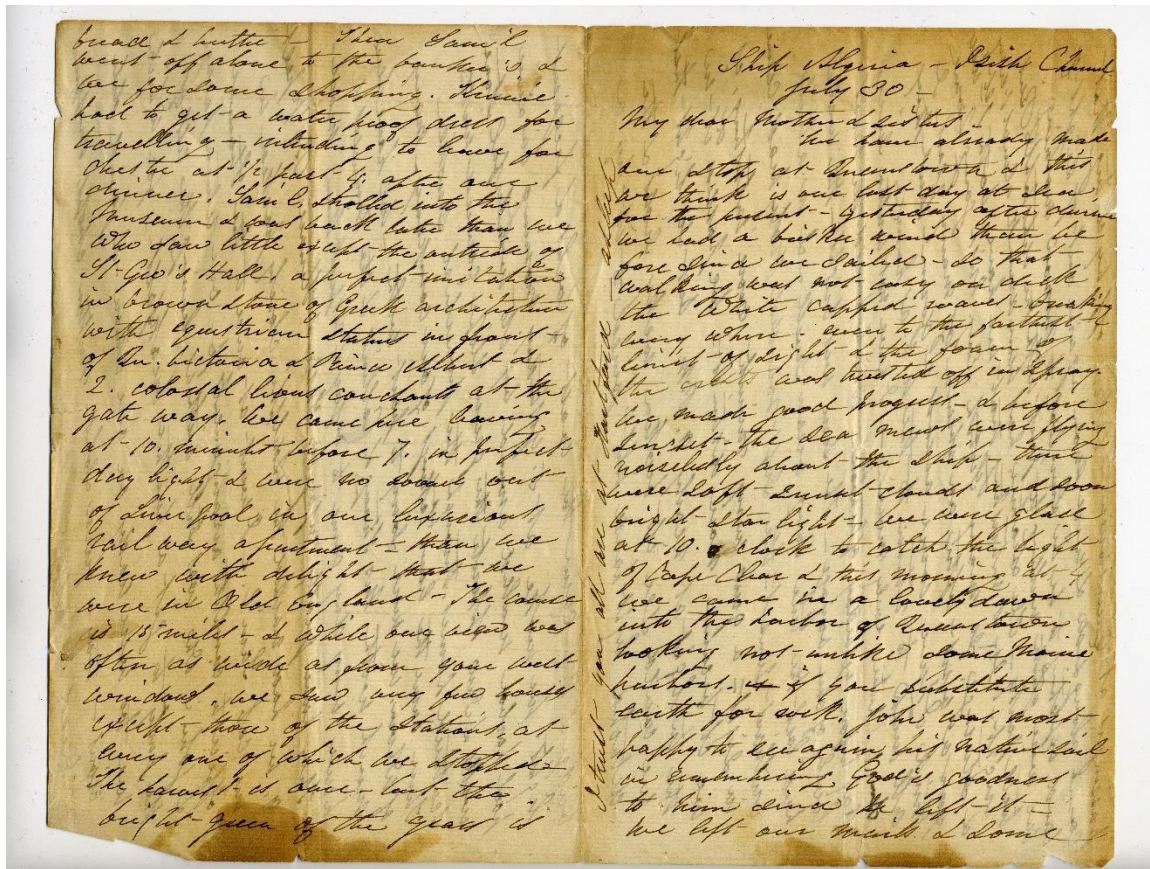 bread & butter – Then Sam'l
went off alone to the banker's &
we for some shopping. Minnie
had to get a water proof dress for
travelling – intending to leave for
Chester at ½ past 4. after our
dinner. Sam'l strolled into the
Museum & was back later than we
who saw little except the outside of
St Geo's Hall. a perfect imitation
in brown stone of Greek architecture
with equestrian statues in front
of Qu. Victoria & Prince Albert &
2. colossal lions couchant at the
gate way. We came here leaving
at 10. minutes before 7. in perfect
day light & were no sooner out
of Liverpool, in our luxurious
rail way apartment – than we
knew with delight that we
were in Old England – The course
is 15 miles – & while our view was
often as wide as from your west
windows, we saw very few houses
except those of the stations, at
every one of which we stopped –
The harvest is over – but the
bright green of the grass is
Ship Algeria – Irish Channel
July 30 –
My dear Mother & sisters –
We have already made
our stop at Queenstown & this
we think is our last day at sea
for the present – Yesterday after dinner
we had a brisker wind than be
fore since we sailed – so that
walking was not easy on deck
the White capped waves breaking
every where. even to the farthest
limit of sight & the foam of
the crests was twisted off in spray.
We made good progress – & before
sunset – the sea mews were flying
noiselessly about the ship – there
were soft sunset clouds and soon
bright star light – We were glad
at 10. o clock to catch the light
of Cape Clear & this morning at 4
we came in a lovely dawn
into the harbor of Queenstown
looking not unlike some Maine
harbors. if you substitute
earth for rock. John was most
happy to see again his native soil
in remembering God's goodness
to him since he left it –
We left our mails & some
I trust you all are at